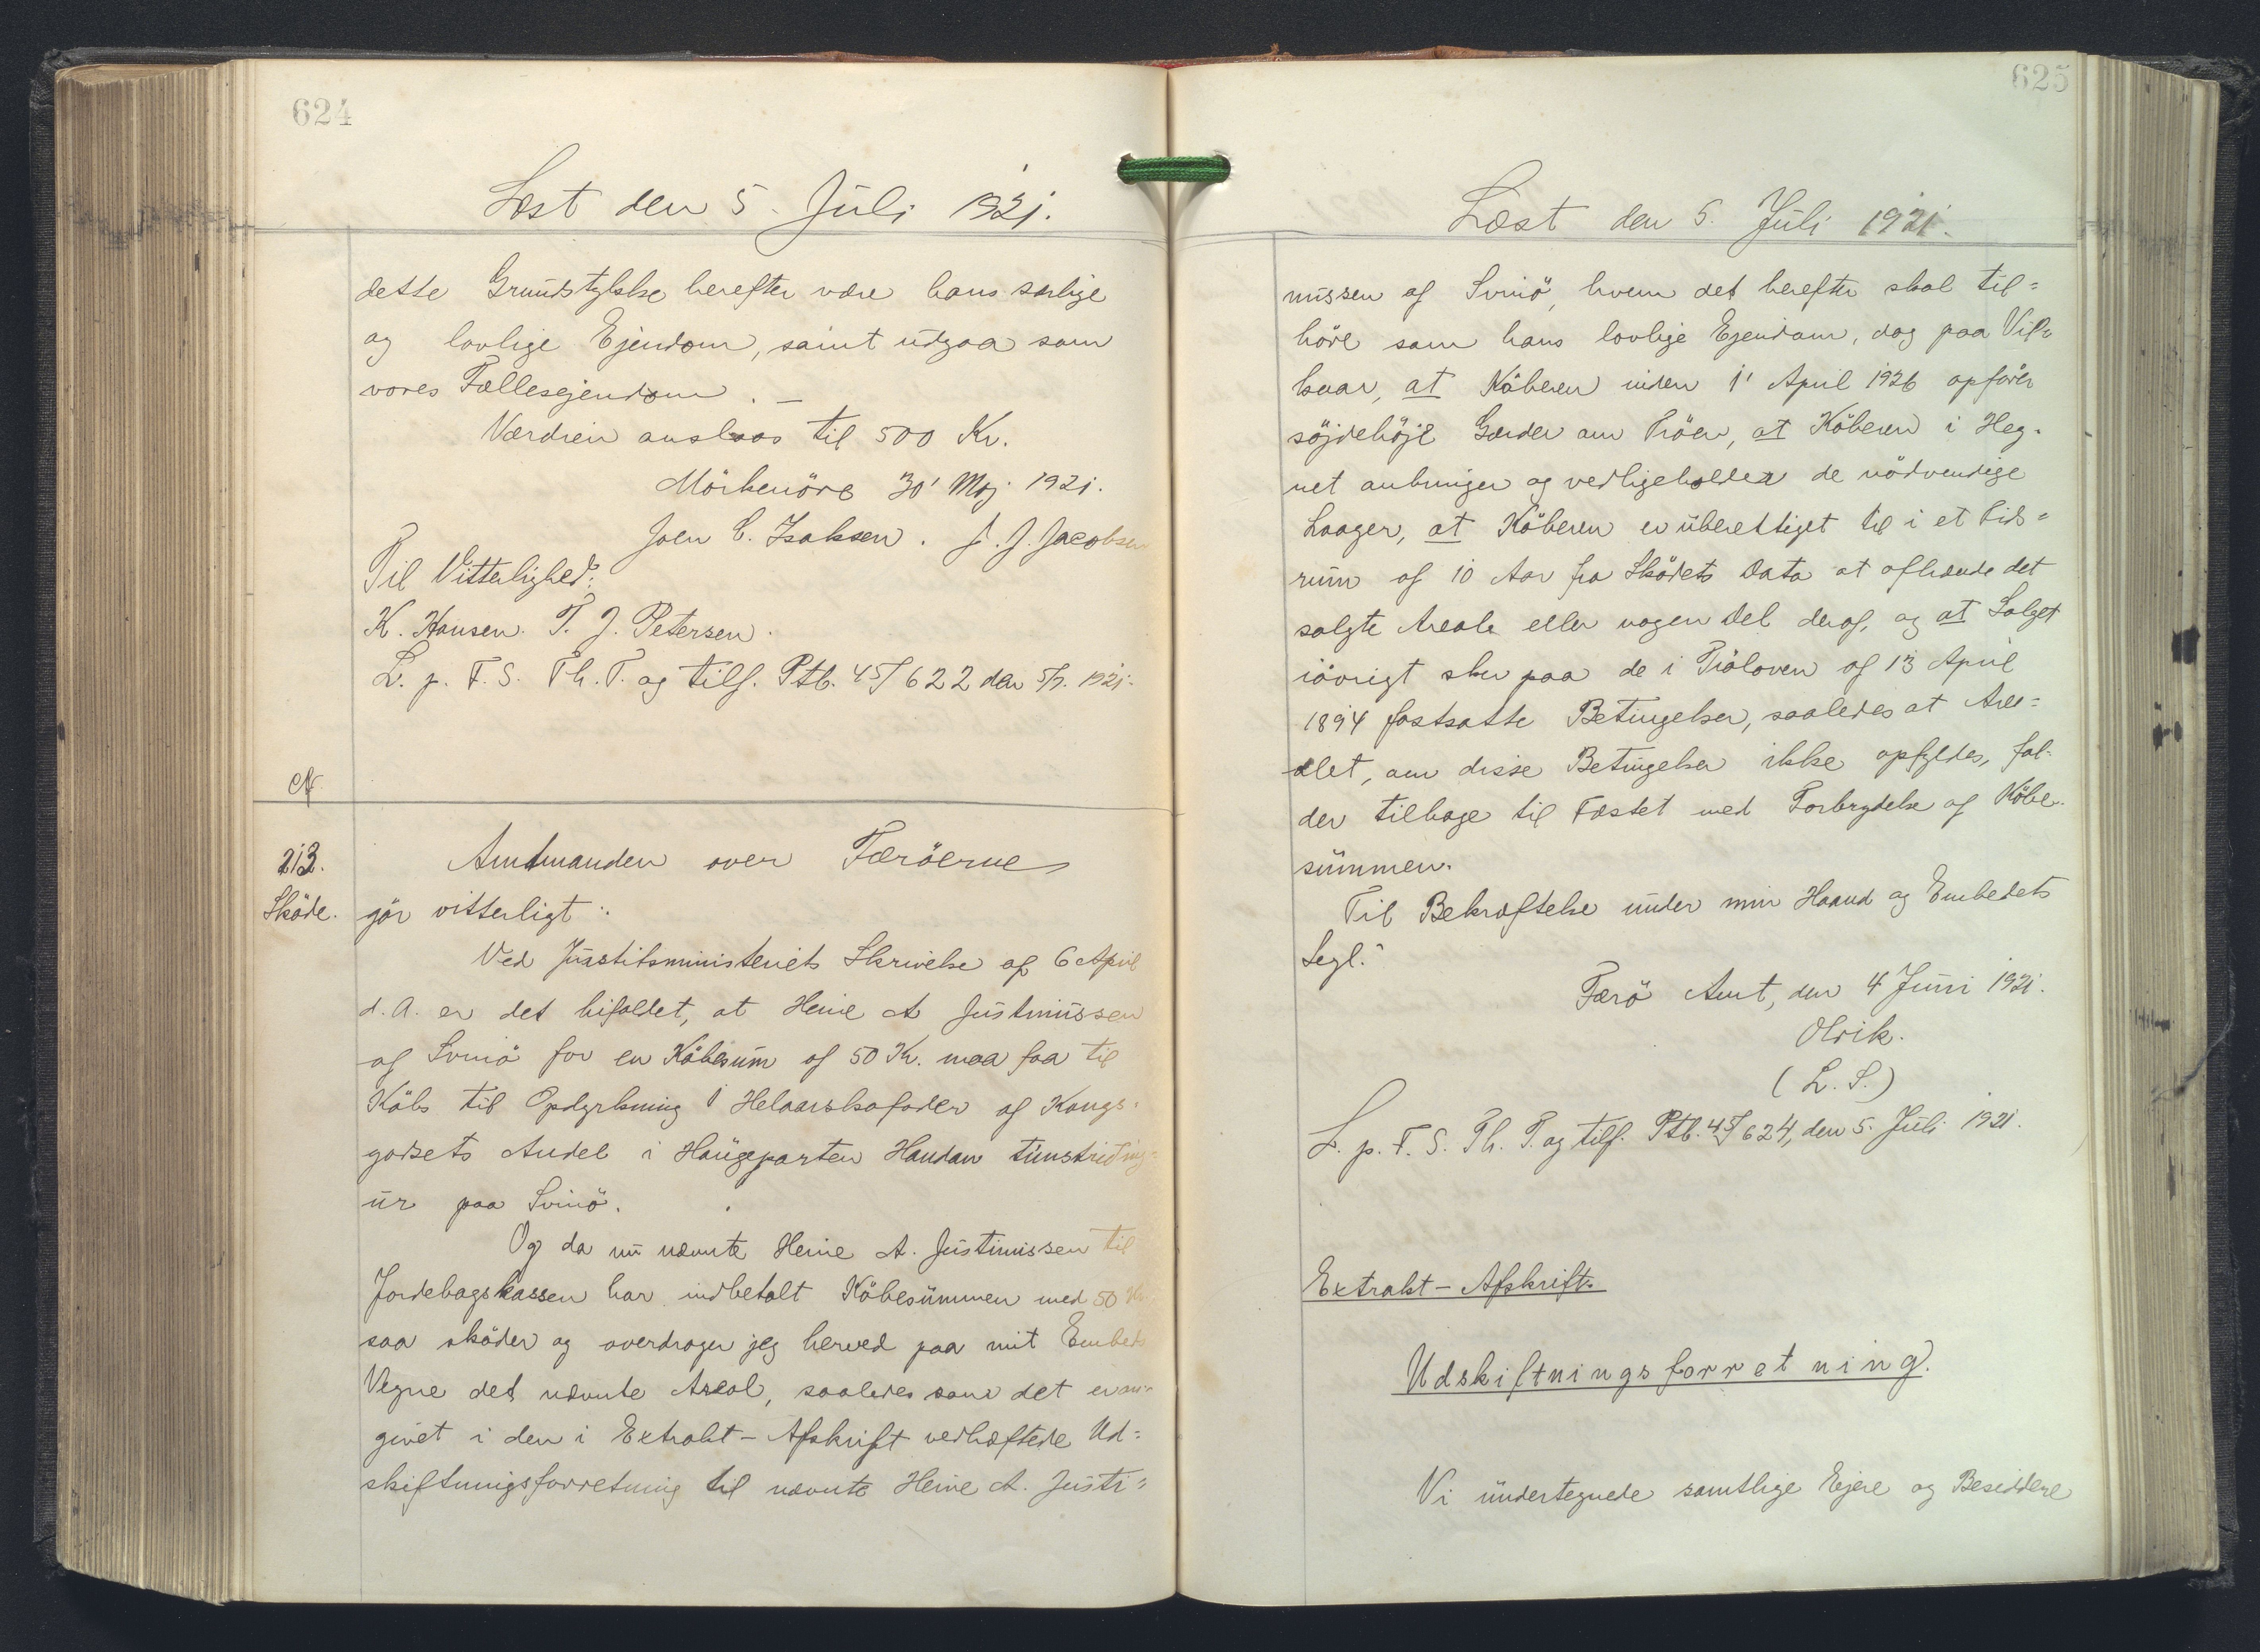 624
Læst den 5. Juli 1921.
dette Grundstykke herefter være hans særlige
og lovlige Ejendom, samt udgaa som
vores Fællesejendom. –
Værdien anslaas til 500 Kr.
Mörkenöre 30' Maj 1921.
Joen C. Isaksen. J. J. Jacobsen
Til Vitterlighed:
K. Hansen. T. J. Petersen.
L. p. F. S. Th. T. og tilf. Ptb. 45/622 den 5/7. 1921.
213.
Sköde.
Amtmanden over Færöerne
gör vitterligt:
Ved Justitsministeriets Skrivelse af 6 April
d. A. er det bifaldet, at Heine A Justinussen
af Svinö for en Köbesum af 50 Kr. maa faa til
Köbs til Opdyrkning 1 Helaarskofoder af Kongs-
godsets Andel i Haugeparten Handan tunstriding-
ur paa Svinö.
Og da nu nævnte Heine A. Justinussen til
Jordebogskassen har indbetalt Köbesummen med 50 Kr.
saa sköder og overdrager jeg herved paa mit Embeds
Vegne det nævnte Areal, saaledes som det er an-
givet i den i Extrakt-Afskrift vedhæftede Ud-
skiftningsforretning til nævnte Heine A. Justi-
625
Læst den 5. Juli 1921.
nussen af Svinö, hvem det herefter skal til-
höre som hans lovlige Ejendom, dog paa Vil-
kaar, at Köberen inden 1' April 1926 opförer
söjdehöje Gærder om Tröen, at Köberen i Heg-
net anbringer og vedligeholder de nödvendige
Laager, at Köberen er uberettiget til i et Tids-
rum af 10 Aar fra Sködets Data at afhænde det
solgte Areale eller nogen Del deraf, og at Salget
iövrigt sker paa de i Tröloven af 13 April
1894 fastsatte Betingelser, saaledes at Are-
alet, om disse Betingelser ikke opfyldes, fal-
der tilbage til Fæstet med Forbrydelse af Köbe-
summen.
Til Bekræftelse under min Haand og Embedets
Segl.
Færö Amt, den 4 Juni 1921.
Olrik.
(L. S.)
L. p. F. S. Th. T. og tilf. Ptb. 45/624, den 5. Juli 1921.
Extrakt-Afskrift.
Udskiftningsforretning.
Vi undertegnede samtlige Ejere og Besiddere